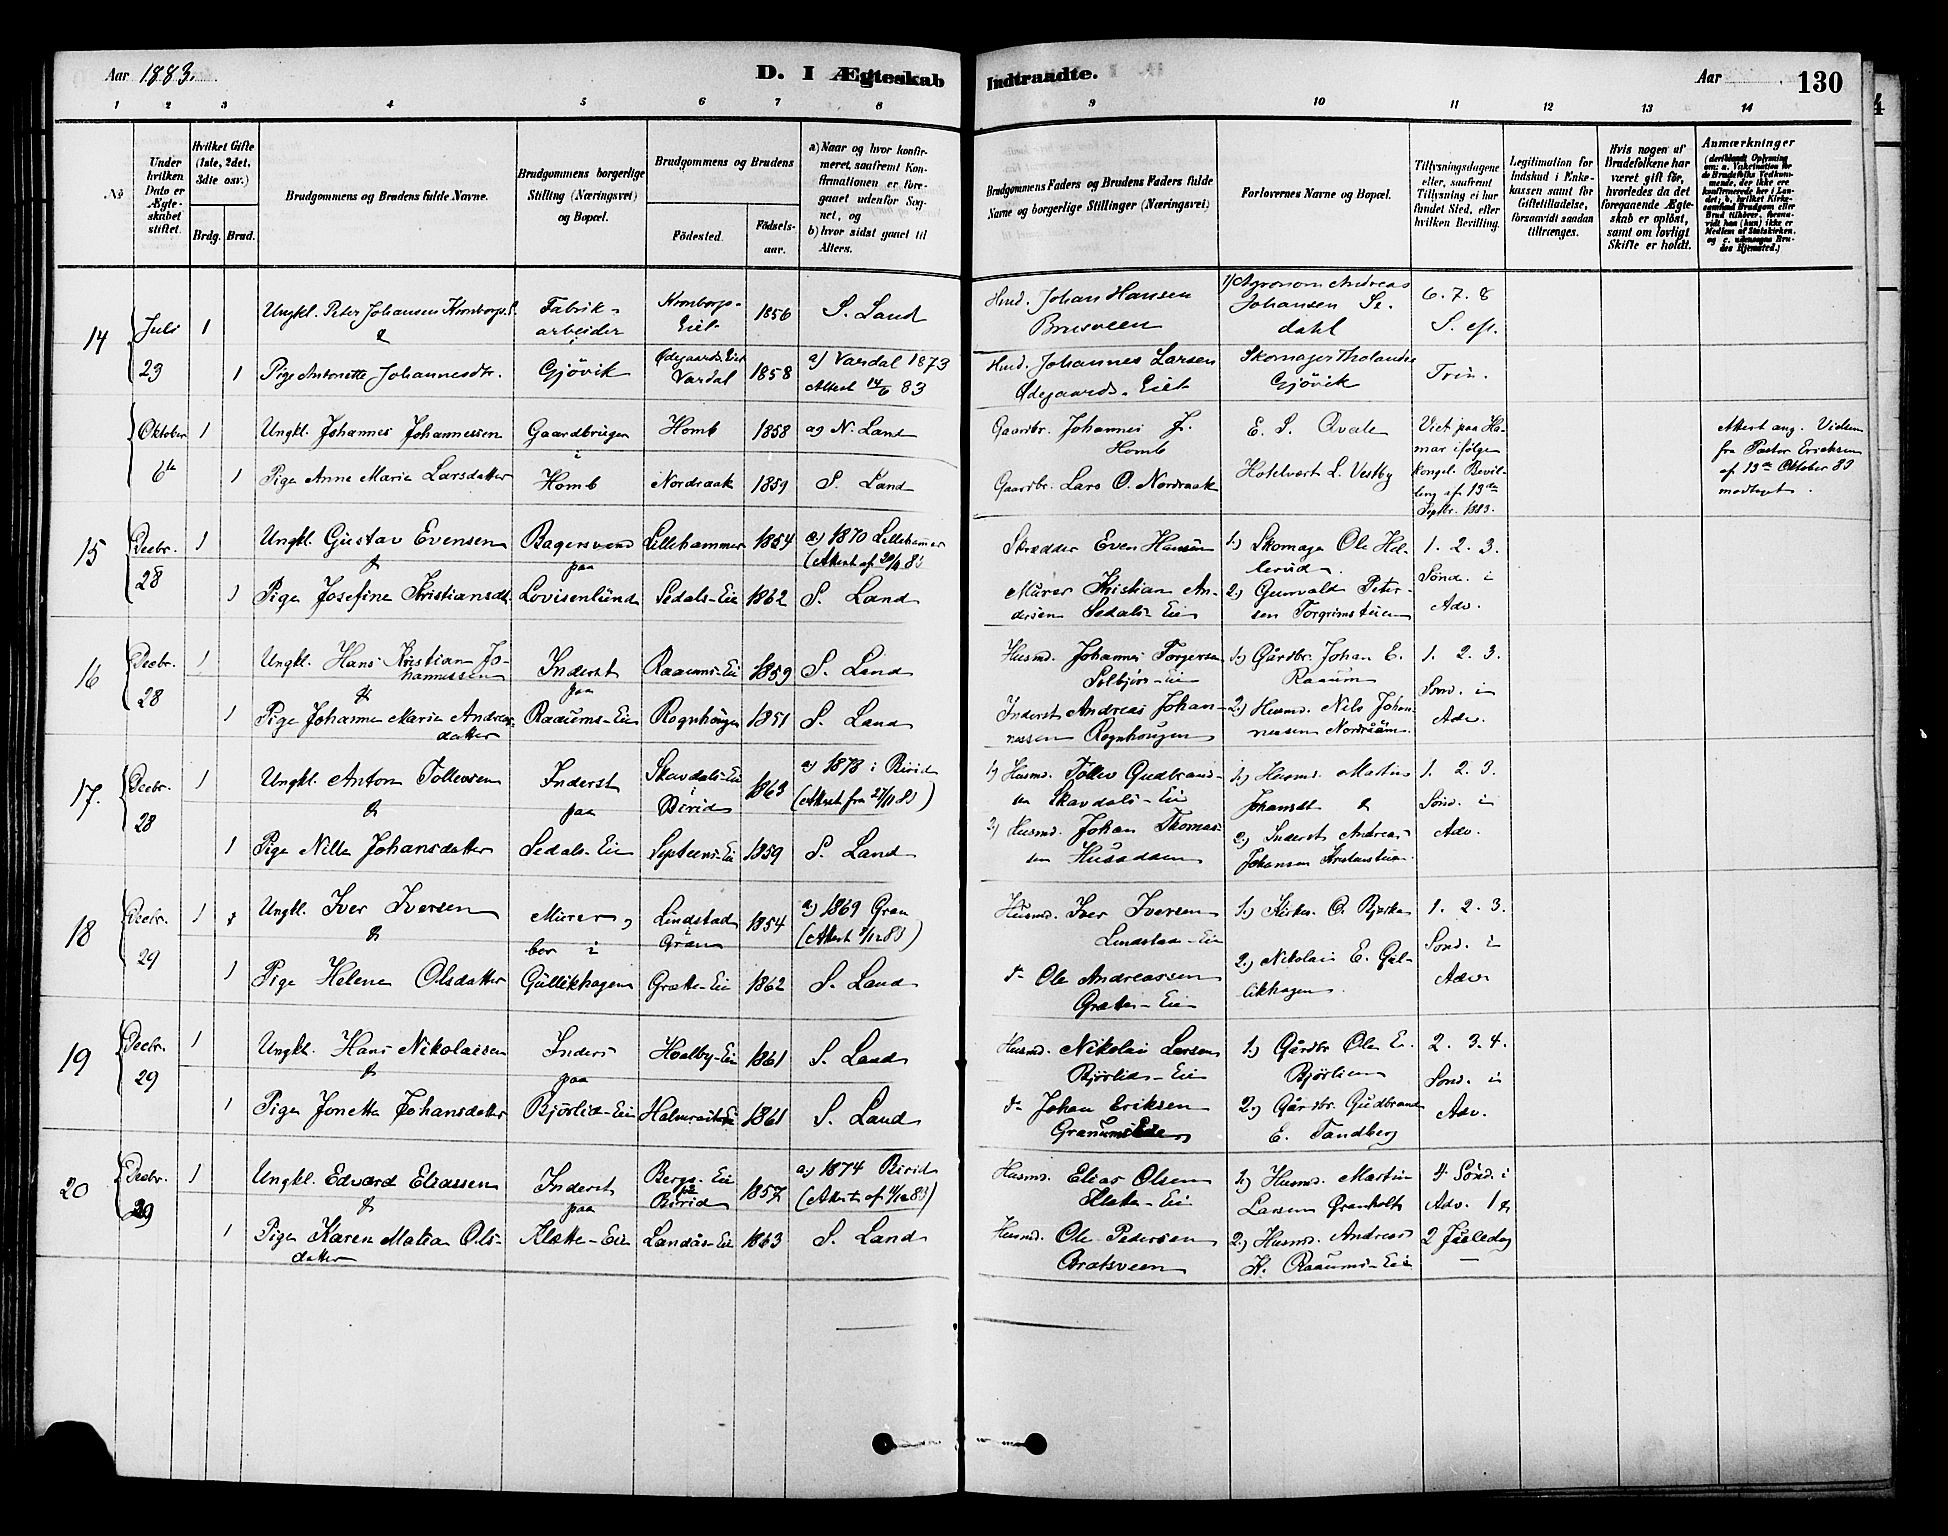 Aar 1883.
D. I Ægteskab
Indtraadte.
Aar
130
1 2 3 4 5 6 7 8 9 10 11 12 13 14
No
Under hvilken Dato er Ægteskabet stiftet.
Hvilket Gifte (1ste, 2det, 3die osv.)
Brdg. Brud.
Brudgommens og Brudens fulde Navne.
Brudgommens borgerlige Stilling (Næringsvei) og Bopæl.
Brudgommens og Brudens
Fødested.
Fødselsaar.
a) Naar og hvor konfirmeret, saafremt Konfirmationen er foregaaet udenfor Sognet, og
b) hvor sidst gaaet til Alters.
Brudgommens Faders og Brudens Faders fulde Navne og borgerlige Stillinger (Næringsvei)
Forlovernes Navne og Bopæl.
Tillysningsdagene eller, saafremt Tillysning ei har fundet Sted, efter hvilken Bevilling.
Legitimation for Indskud i Enkekassen samt for Giftetilladelse, forsaavidt saadan tiltrænges.
Hvis nogen af Brudefolkene har været gift før, hvorledes da det foregaaende Ægteskab er opløst, samt om lovligt Skifte er holdt.
Anmærkninger
14 Juli 23
1 Ungkl. Peter Johansen Kronborgs
&
Fabrikarbeider
Kronborgs-Eiet
1856
S. Land
Husd. Johan Hansen
1) Agronom Andreas Johansen Sedahl
6. 7. 8
S. eft.
Trin.
1 Pige Antonette Johannesdtr.
Gjövik
Ødegaards Eiet Vardal
1858
a) Vardal 1873
Attest 14/6 83
Husd. Johannes Larsen
Ødegaards-Eiet
Skomager
Gjövik
Oktober 6te
1 Ungkl. Johannes Johannessen
Gaardbruger
i
Homb
Homb
1858
a) N. Land
Gaardbr. Johannes J.
Homb
E. S. Qvale
Viet paa Hamar ifølge kongel. Bevilling af 13de Septbr. 1883.
Attest ang. Vielsen
fra Pastor Ericksen
af 13de Oktober 83
modtaget.
1 Pige Anne Marie Larsdatter
Nordraak
1859
S. Land
Gaardbr. Lars O. Nordraak
Hotelvert L. Vestby
15 Decbr. 28
1 Ungkl. Gustav Evensen
&
Bagersvend
paa
Lovisenlund
Lillehammer
1854
a) 1870 Lillehammer
(Attest af 20/11 83
Skrædder Even Hansen
1.) Skomager Ole Hollerud.
1. 2. 3.
Sönd. i
Adv.
1 Pige Josefine Kristiansdt.
Sedals-Eie
1862
S. Land
Murer Kristian Andersen Sedals-Eie
2.) Gunvald Petersen Torgrimstuen
16 Decbr. 28
1 Ungkl. Hans Kristian Johannessen
&
Inderst
paa
Raaums-Eie
Raaums-Eie
1859
S. Land
Husmd. Johannes Torgersen
Solbjørs-Eie
1.) Gårdbr. Johan E. Raaum
1. 2. 3.
Sönd. i
Adv.
1 Pige Johanne Marie Andreasdatter
Rognhougen
1851
S. Land
Inderst Andreas Johannessen Rognhougen
2.) Husmd. Nils Johannessen Nordråum.
17. Decbr. 28
1 Ungkl. Anton Tollevsen
&
Inderst
paa
Sedals-Eie
Skavdals-Eie
i
Birid
1863
a) 1878 i Birid
(Attest fra 27/11 83)
1) Husmd. Tollev Gudbrandsen Skavdals-Eie
1.) Husmd. Martin Johansdt &
1. 2. 3.
Sönd. i
Adv.
1 Pige Nille Johansdatter
Septuns-Eie
1859
S. Land
2) Husmd. Johan Thomassen Husodden
2) Inderst Andreas Johansen
18 Decbr. 29
1 Ungkl. Iver Iversen
&
Murer,
bor i
Gullikhagen
Lindstad
i
Gran
1854
a) 1869 Gran
(Attest 1/12 83)
Husmd. Iver Iversen
Lindstad-Eie
1.) Kirkes. O. Bjerke
1. 2. 3.
Sönd. i
Adv.
1 Pige Helene Olsdatter
Grætte-Eie
1862
S. Land
do Ole Andreassen
Grætte-Eie
2.) Nikolai E. Gullikhagen.
19 Decbr. 29
1 Ungkl. Hans Nikolaisen
&
Inderst
paa
Bjørlid-Eie
Hvalby-Eie
1861
S. Land
Husmd. Nikolai Larsen
Bjørlid-Eie
1.) Gårdbr Ole E. Bjørlien
2. 3. 4.
Sönd. i
Adv.
1 Pige Jonette Johansdatter
1861
S. Land
do Johan Eriksen
Granums Eie
2.) Gårdbr. Gudbrand E. Tandberg
20 Decbr. 29
1 Ungkl. Edvard Eliassen
&
Inderst
paa
Klætte-Eie
Bergs-Eie
i
Birid
1857
a.) 1874 Birid
(Attest af 4/12 83)
Husmd. Elias Olsen
Klætte-Eie
1.) Husmd. Martin Larsen Grønholt
4 Sönd. i
Adv. 1 &
2 Juledag
1 Pige Karen Matea Olsdatter
Landås-Eie
1863
S. Land
Husmd. Ole Pedersen
Bratsveen
2.) Husmd. Andreas H. Raaums-Eie